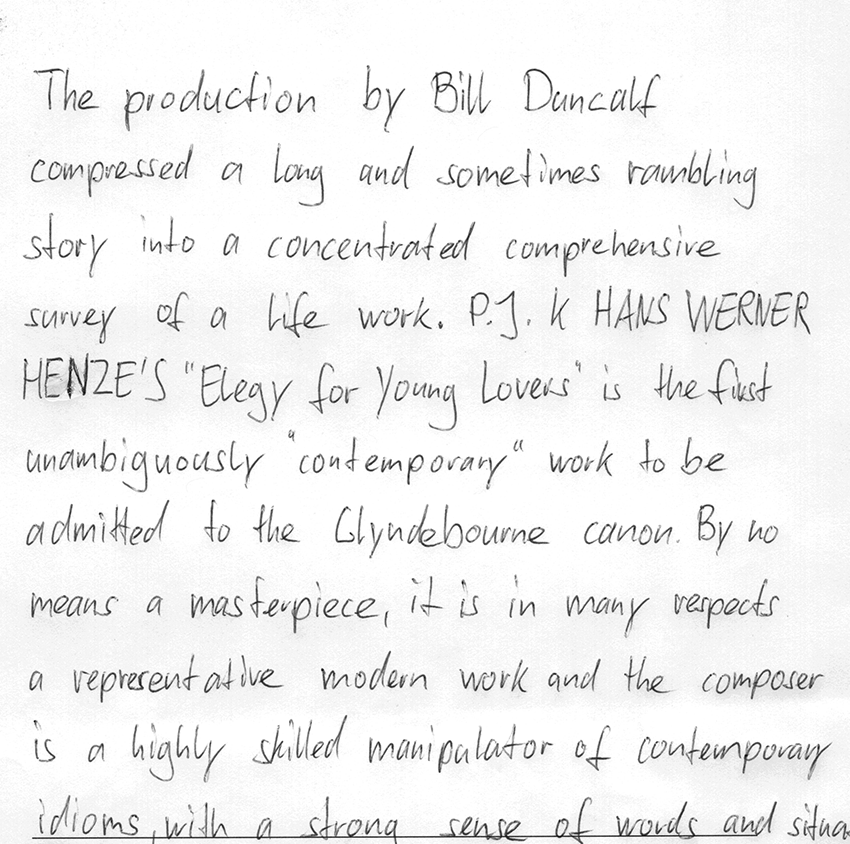 The production by Bill Duncalf
compressed a long and sometimes rambling
story into a concentrated comprehensive
survey of a life work. P.J. K HANS WERNER
HENZE'S "Elegy for Young Lovers" is the first
unambiguously "contemporary" work to be
admitted to the Glyndebourne canon. By no
means a masterpiece, it is in many respects
a representative modern work and the composer
is a highly skilled manipulator of contemporary
idioms, with a strong sense of words and